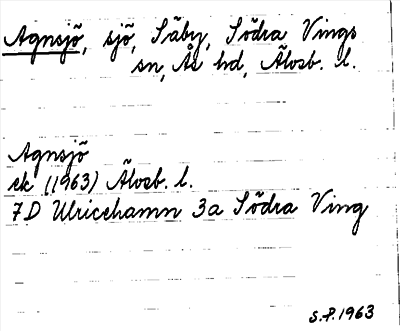 Agnsjö, sjö, Säby, Södra Vings
sn, Ås hd, Älvsb. l.
Agnsjö
ek (1963) Älvsb. l.
7D Ulricehamn 3a Södra Ving
S.P. 1963